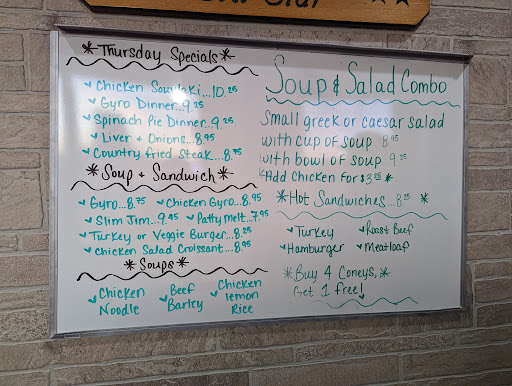 *Thursday Specials*
Chicken Souvlaki...10.25
Gyro Dinner..9.25
Spinach Pie Dinner..9.25
Liver + Onions...8.95
Country fried Steak...8.75
*Soup + Sandwich*
Gyro...8.75 Chicken Gyro...8.95
Slim Jim...9.45 Patty melt...7.95
Turkey or Veggie Burger...8.25
Chicken Salad Croissant...8.95
*Soups*
Chicken Noodle
Beef Barley
Chicken lemon Rice
Soup & Salad Combo
Small greek or caesar salad
with cup of soup 8.95
with bowl of soup 9.25
Add Chicken for $3.25 *
*Hot Sandwiches...8.25 *
Turkey Roast Beef
Hamburger Meatloaf
*Buy 4 Coneys,*
Get 1 free!